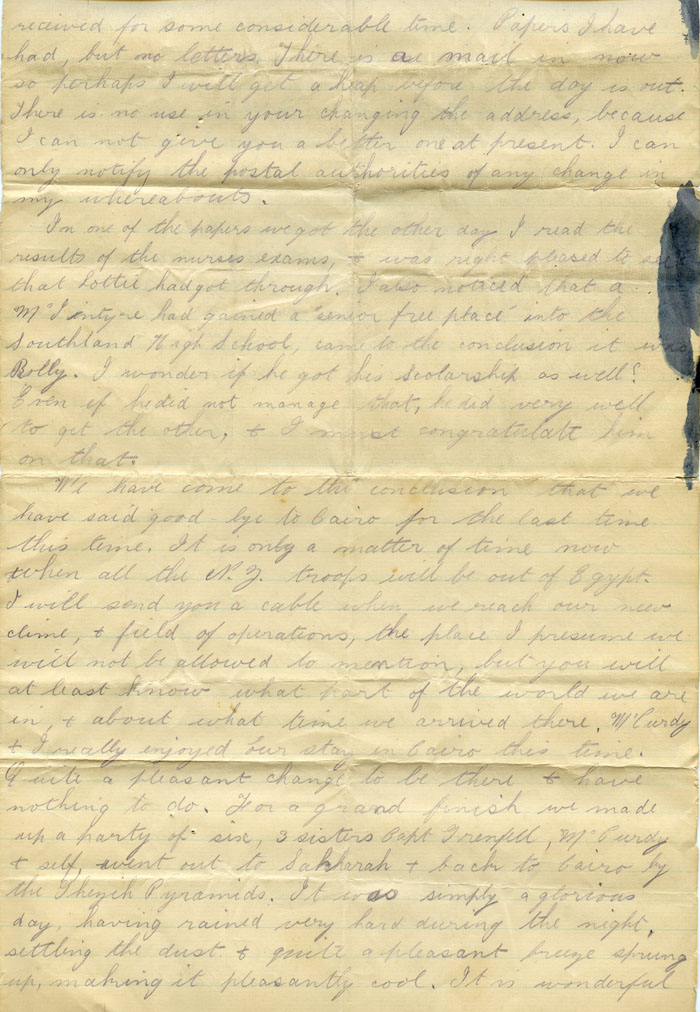 recieved for some considerable time. Papers I have
had, but no letters. There is a mail in now
so perhaps I will get a heap before the day is out.
There is no use in your changing the address, because
I can not give you a better one at present. I can
only notify the postal authorities of any change in
my whereabouts.
In one of the papers we got the other day I read the
results of the nurses exams, & was right pleased to see
that Lottie had got through. I also noticed that a
McIntyre had gained a "senior free place" into the
Southland High School, came to the conclusion it was
Rolly. I wonder if he got his scolarship as well?
Even if he did not manage that, he did very well
to get the other, & I must congratulate him
on that.
We have come to the conclusion that we
have said good bye to Cairo for the last time
this time. It is only a matter of time now
when all the N.Z. troops will be out of Egypt.
I will send you a cable when we reach our new
clime, & field of operations, the place I presume we
will not be allowed to mention, but you will
at least know what part of the world we are
in, & about what time we arrived there. McCurdy
& I really enjoyed our stay in Cairo this time.
Quite a pleasant change to be there & have
nothing to do. For a grand finish we made
up a party of six, 3 sisters Capt Trenfell, McCurdy
& self, went out to Sakharah & back to Cairo by
the Pyramids. It was simply a glorious
day, having rained very hard during the night,
settling the dust & quite a pleasant breeze sprung
up, making it pleasantly cool. It is wonderful